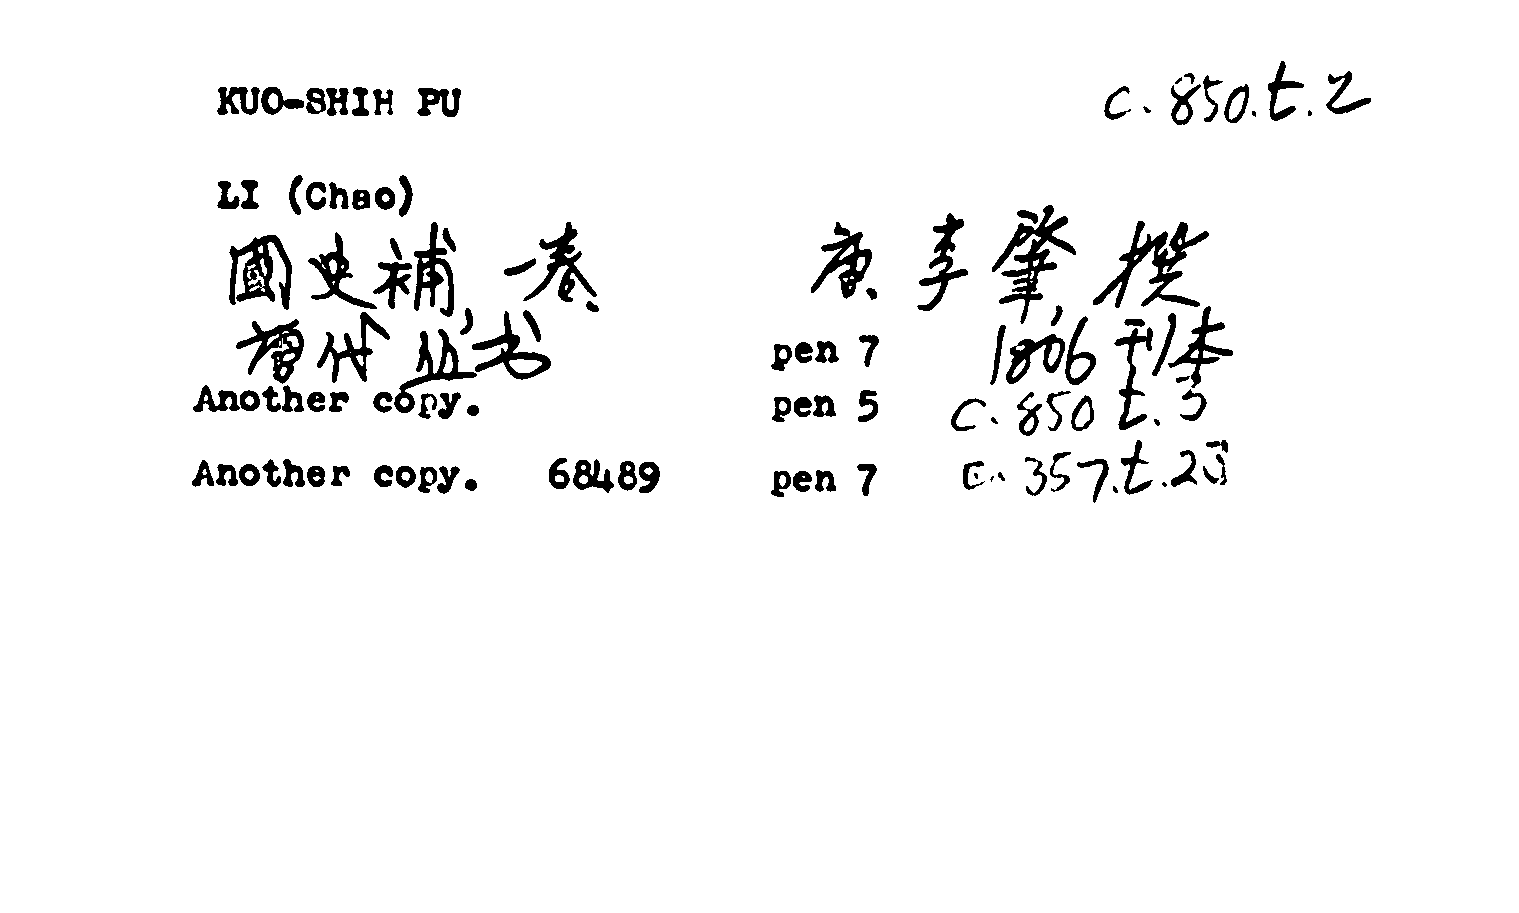 KUO-SHIH PU c.850.t.2
LI (Chao)
國史補,一卷 唐 李肇 撰
唐代丛书 pen 7 1806 刊本
Another copy. pen 5 c.850 t.3
Another copy. 68489 pen 7 E.357.t.2